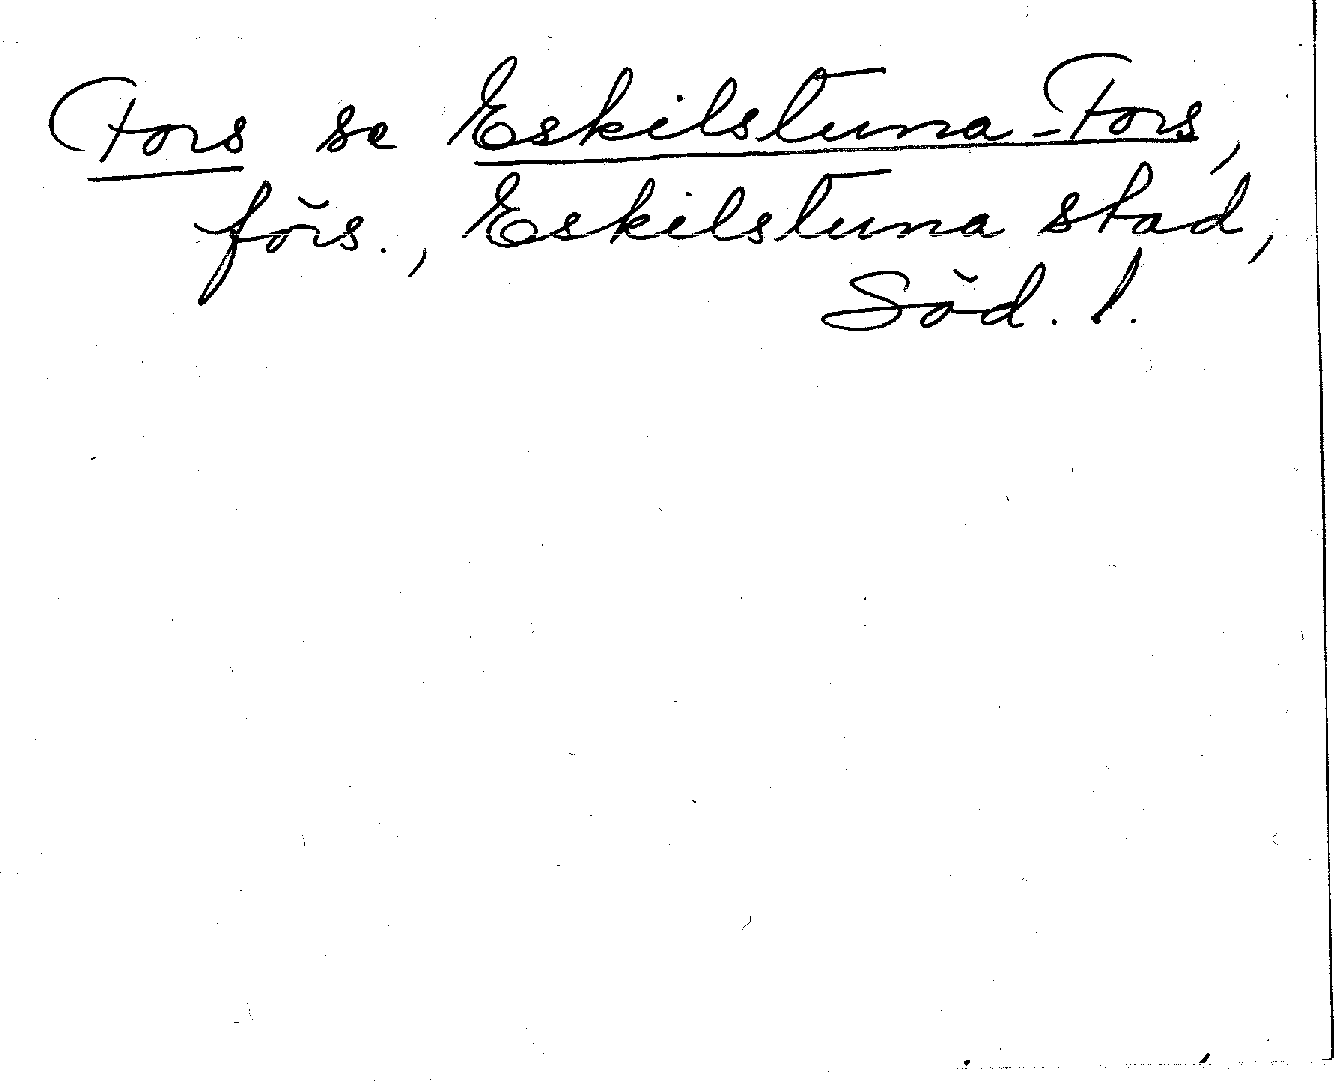 Fors se Eskilstuna-Fors,
förs., Eskilstuna stad,
Söd. l.